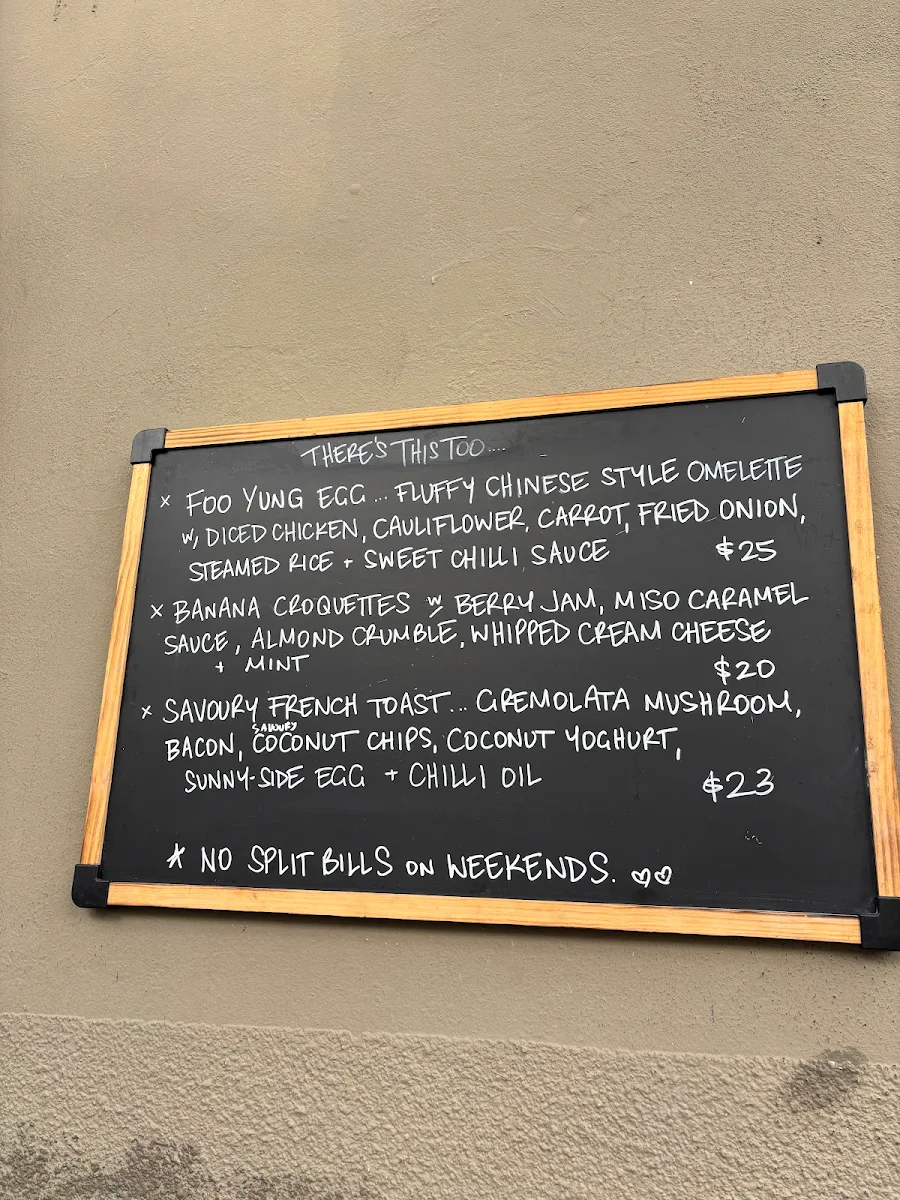 THERE'S THIS TOO....
x FOO YUNG EGG ... FLUFFY CHINESE STYLE OMELETTE
w/ DICED CHICKEN, CAULIFLOWER, CARROT, FRIED ONION,
STEAMED RICE + SWEET CHILLI SAUCE $25
x BANANA CROQUETTES w/ BERRY JAM, MISO CARAMEL
SAUCE, ALMOND CRUMBLE, WHIPPED CREAM CHEESE
+ MINT $20
x SAVOURY FRENCH TOAST... GREMOLATA MUSHROOM,
SAVOURY
BACON, COCONUT CHIPS, COCONUT YOGHURT,
SUNNY-SIDE EGG + CHILLI OIL $23
* NO SPLIT BILLS ON WEEKENDS. ♡♡